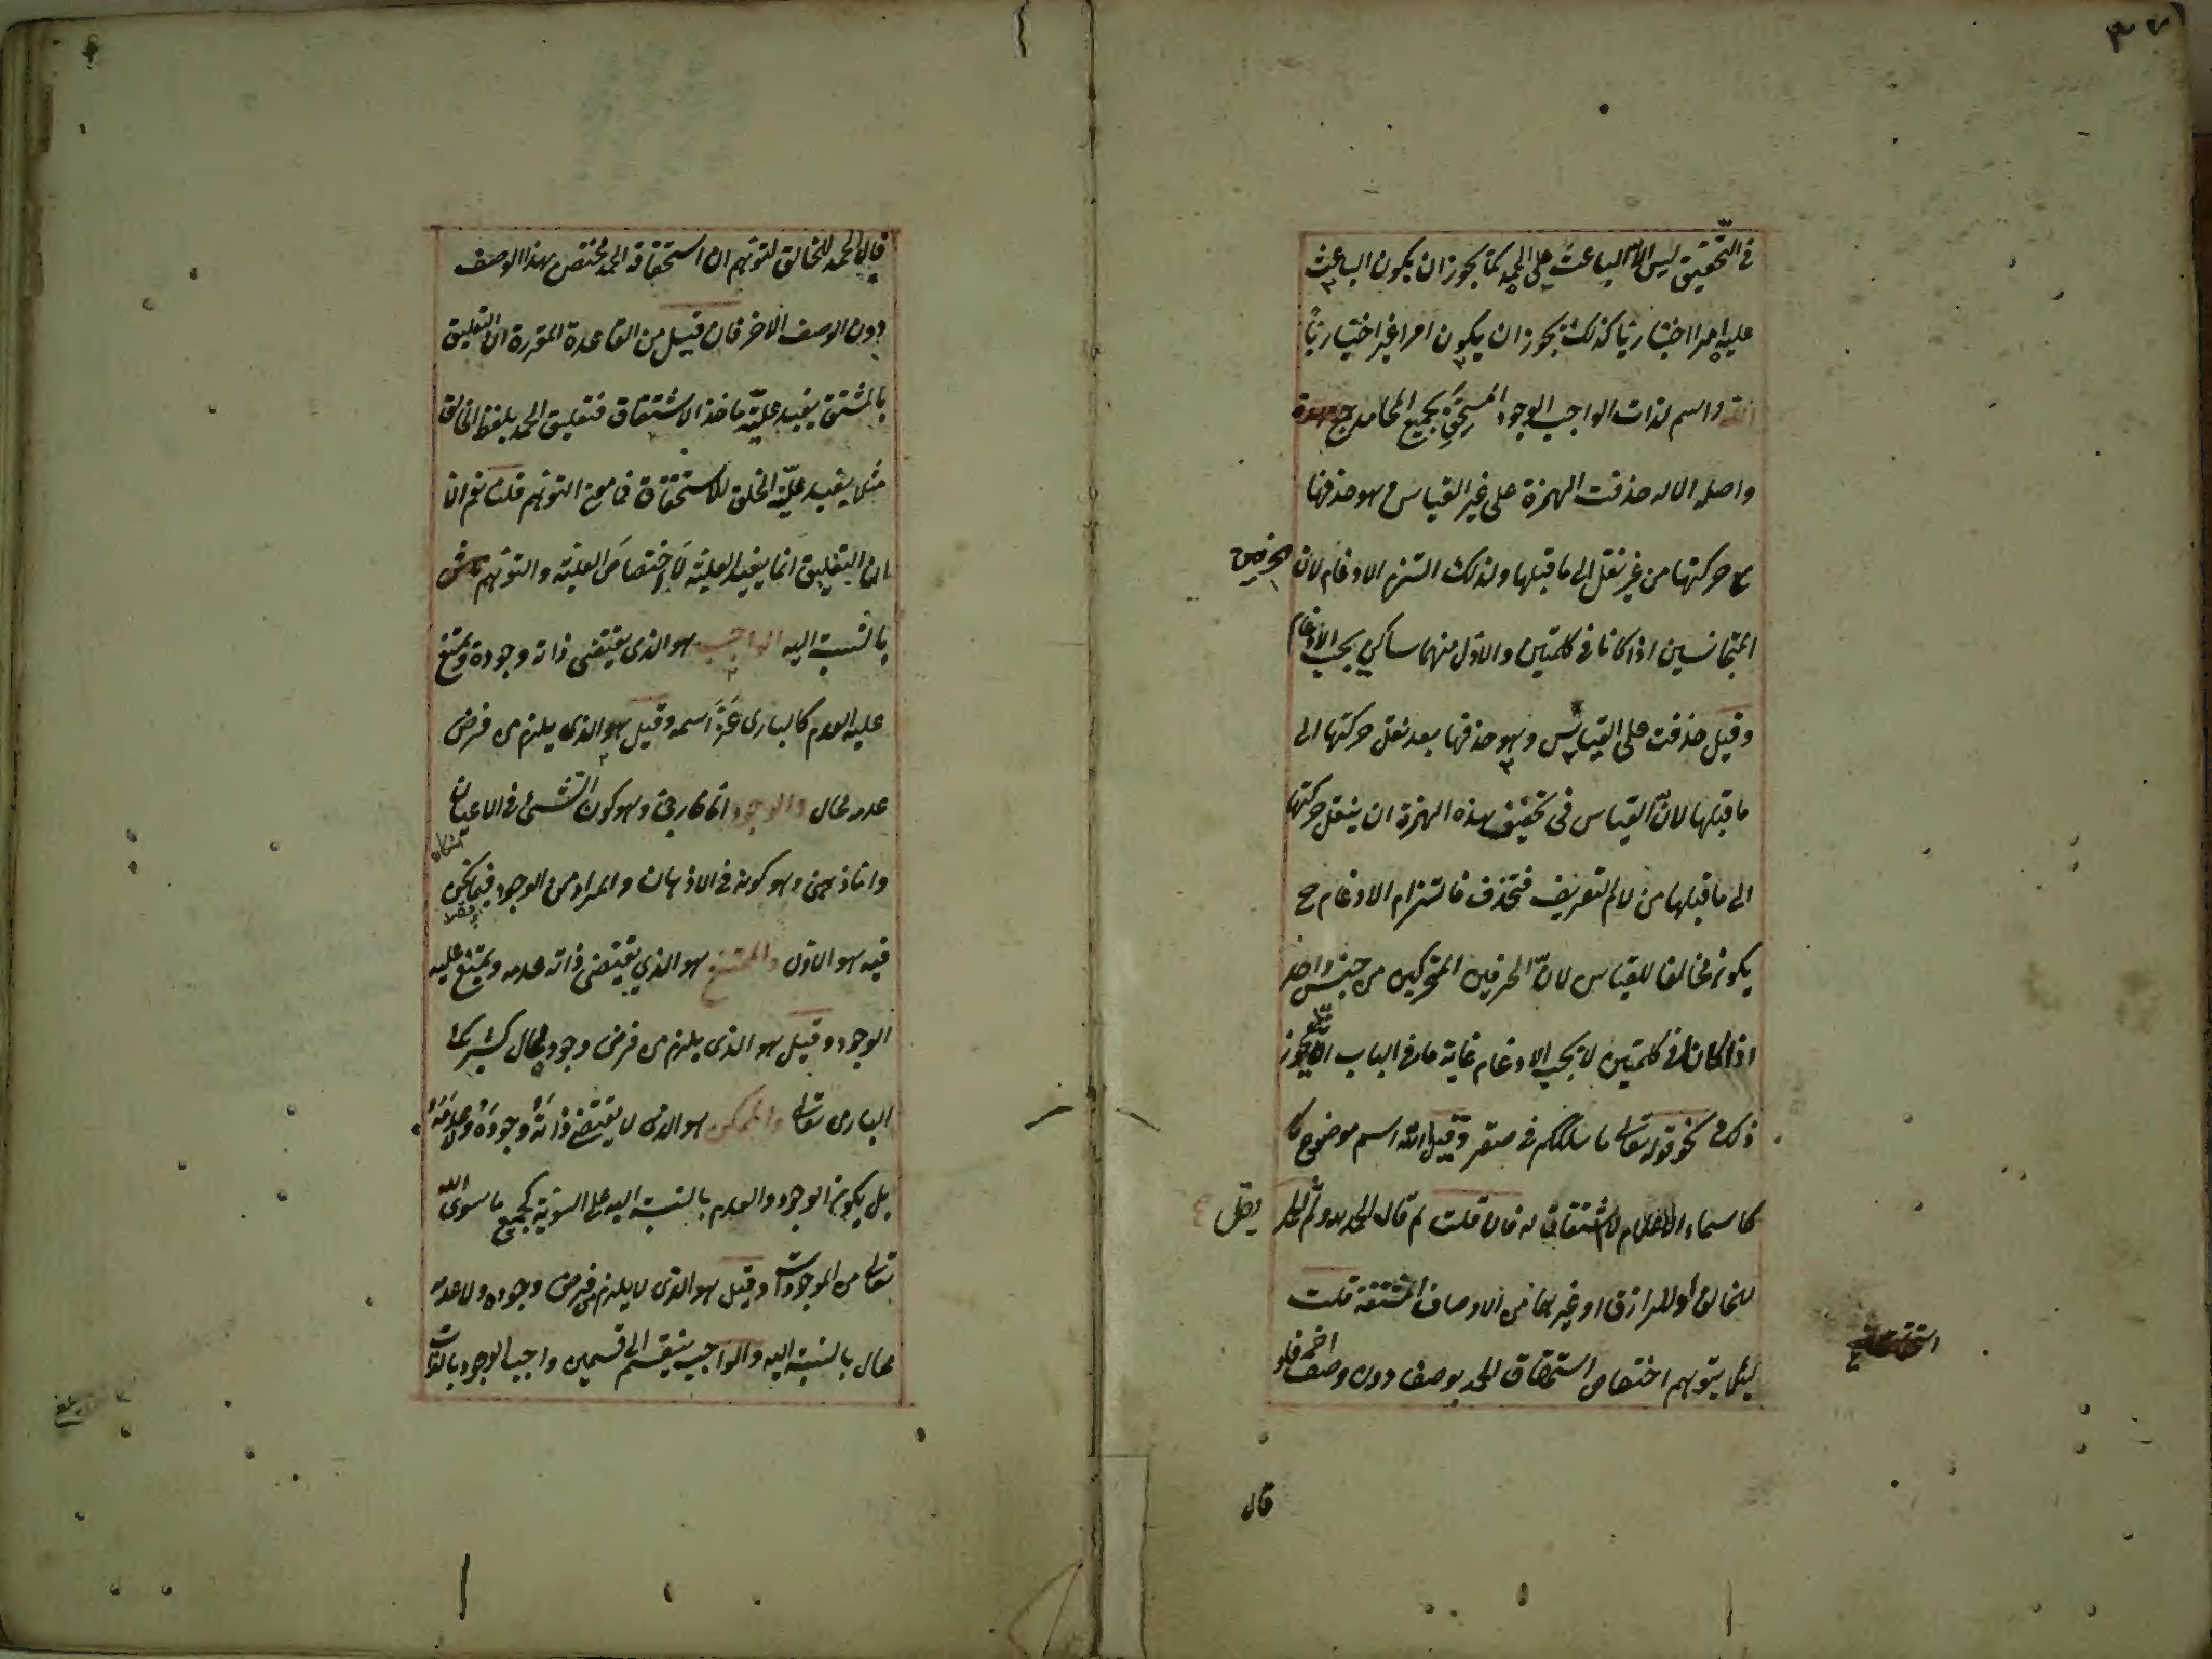 ٣٧
في التحقيق ليس الا الباعث على الحمد كما يجوز ان يكون الباعث
عليه امرا اختياريا كذلك يجوز ان يكون امرا غير اختياريا
الله واسم لذات الواجب الوجود المستحق بجميع المحامد
واصله الاله حذفت الهمزة على غير القياس وهو حذفها
مع حركتها من غير نقل الى ما قبلها ولذلك التزم الادغام لان الحرفين
المتجانسين اذا كانا في كلمتين والاول منهما ساكن يجب الادغام
وقيل حذفت على القياس وهو حذفها بعد نقل حركتها الى
ما قبلها لان القياس في تخفيف هذه الهمزة ان ينقل حركتها
الى ما قبلها من لام التعريف فتحذف فالتزام الادغام ح
يكون مخالفا للقياس لان الحرفين المتحركين من جنس واحد
اذا كانا في كلمتين لا يجب الادغام غاية ما في الباب انه يجوز
ذلك في نحو قوله تعالى ما سلككم في سقر وقيل الله اسم موضوع
كاسماء الاعلام لا اشتقاق له فان قلت لم قال الحمد لله ولم يقل
للخالق او للرازق او غيرهما من الاوصاف المشتقة قلت
لئلا يتوهم اختصاص استحقاق الحمد بوصف دون وصف اخر فلو
قال
قال الحمد للخالق لتوهم ان استحقاقه الحمد مختص بهذا الوصف
دون الوصف الاخر فان قيل من القاعدة المقررة ان التعليق
بالمشتق يفيد علية ماخذ الاشتقاق فتعليق الحمد بلفظ الخالق
مثلا يفيد علية الخلق للاستحقاق فما معنى التوهم قلت نعم الا
ان التعليق انما يفيد العلية لا اختصاص العلية والتوهم ناش
بالنسبة اليه الواجب هو الذي يقتضى ذاته وجوده ويمتنع
عليه العدم كالبارى عز اسمه وقيل هو الذي يلزم من فرض
عدمه محال والوجود اما خارجى وهو كون الشيئ في الاعيان
واما ذهنى وهو كونه في الاذهان والمراد من الوجود فيما نحن
فيه هو الاول والممتنع هو الذي يقتضى ذاته عدمه ويمتنع عليه
الوجود وقيل هو الذي يلزم من فرض وجوده محال كشريك
البارى تعالى والممكن هو الذي لا يقتضى ذاته وجوده ولا عدمه
بل يكون الوجود والعدم بالنسبة اليه على السوية كجميع ما سوى الله
تعالى من الموجودات وقيل هو الذي لا يلزم من فرض وجوده ولا عدمه
محال بالنسبة اليه والواجب ينقسم الى قسمين واجب الوجود بالذات